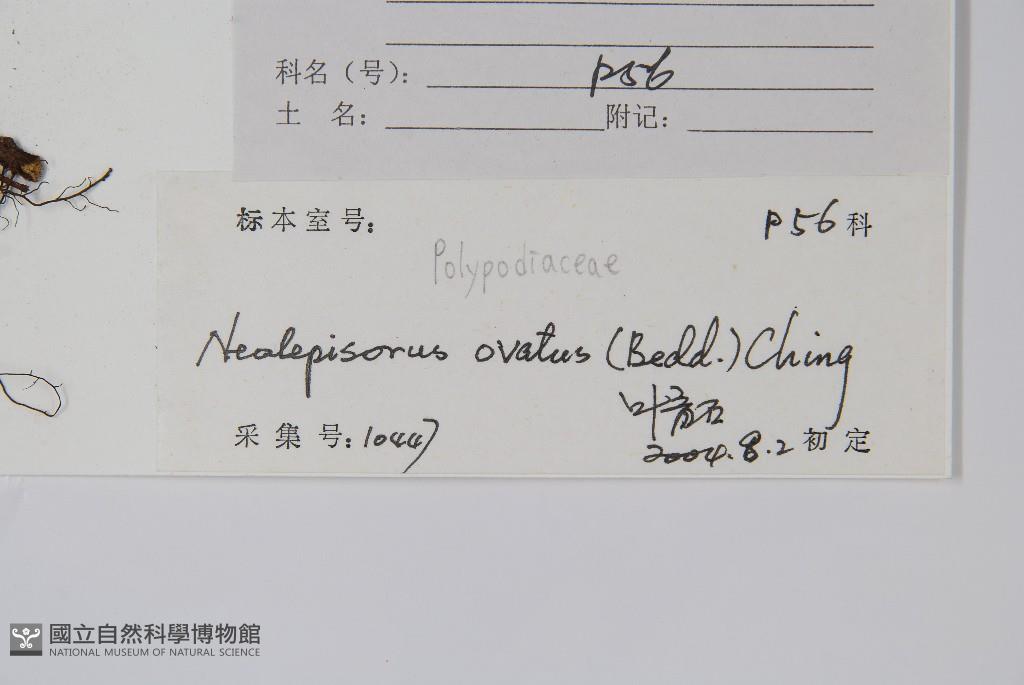 科名（号）： P56
土 名： 附记：
标本室号： P56 科
Polypodiaceae
Neolepisorus ovatus (Bedd.) Ching
采集号：10447
2004.8.2 初定
國立自然科學博物館
NATIONAL MUSEUM OF NATURAL SCIENCE